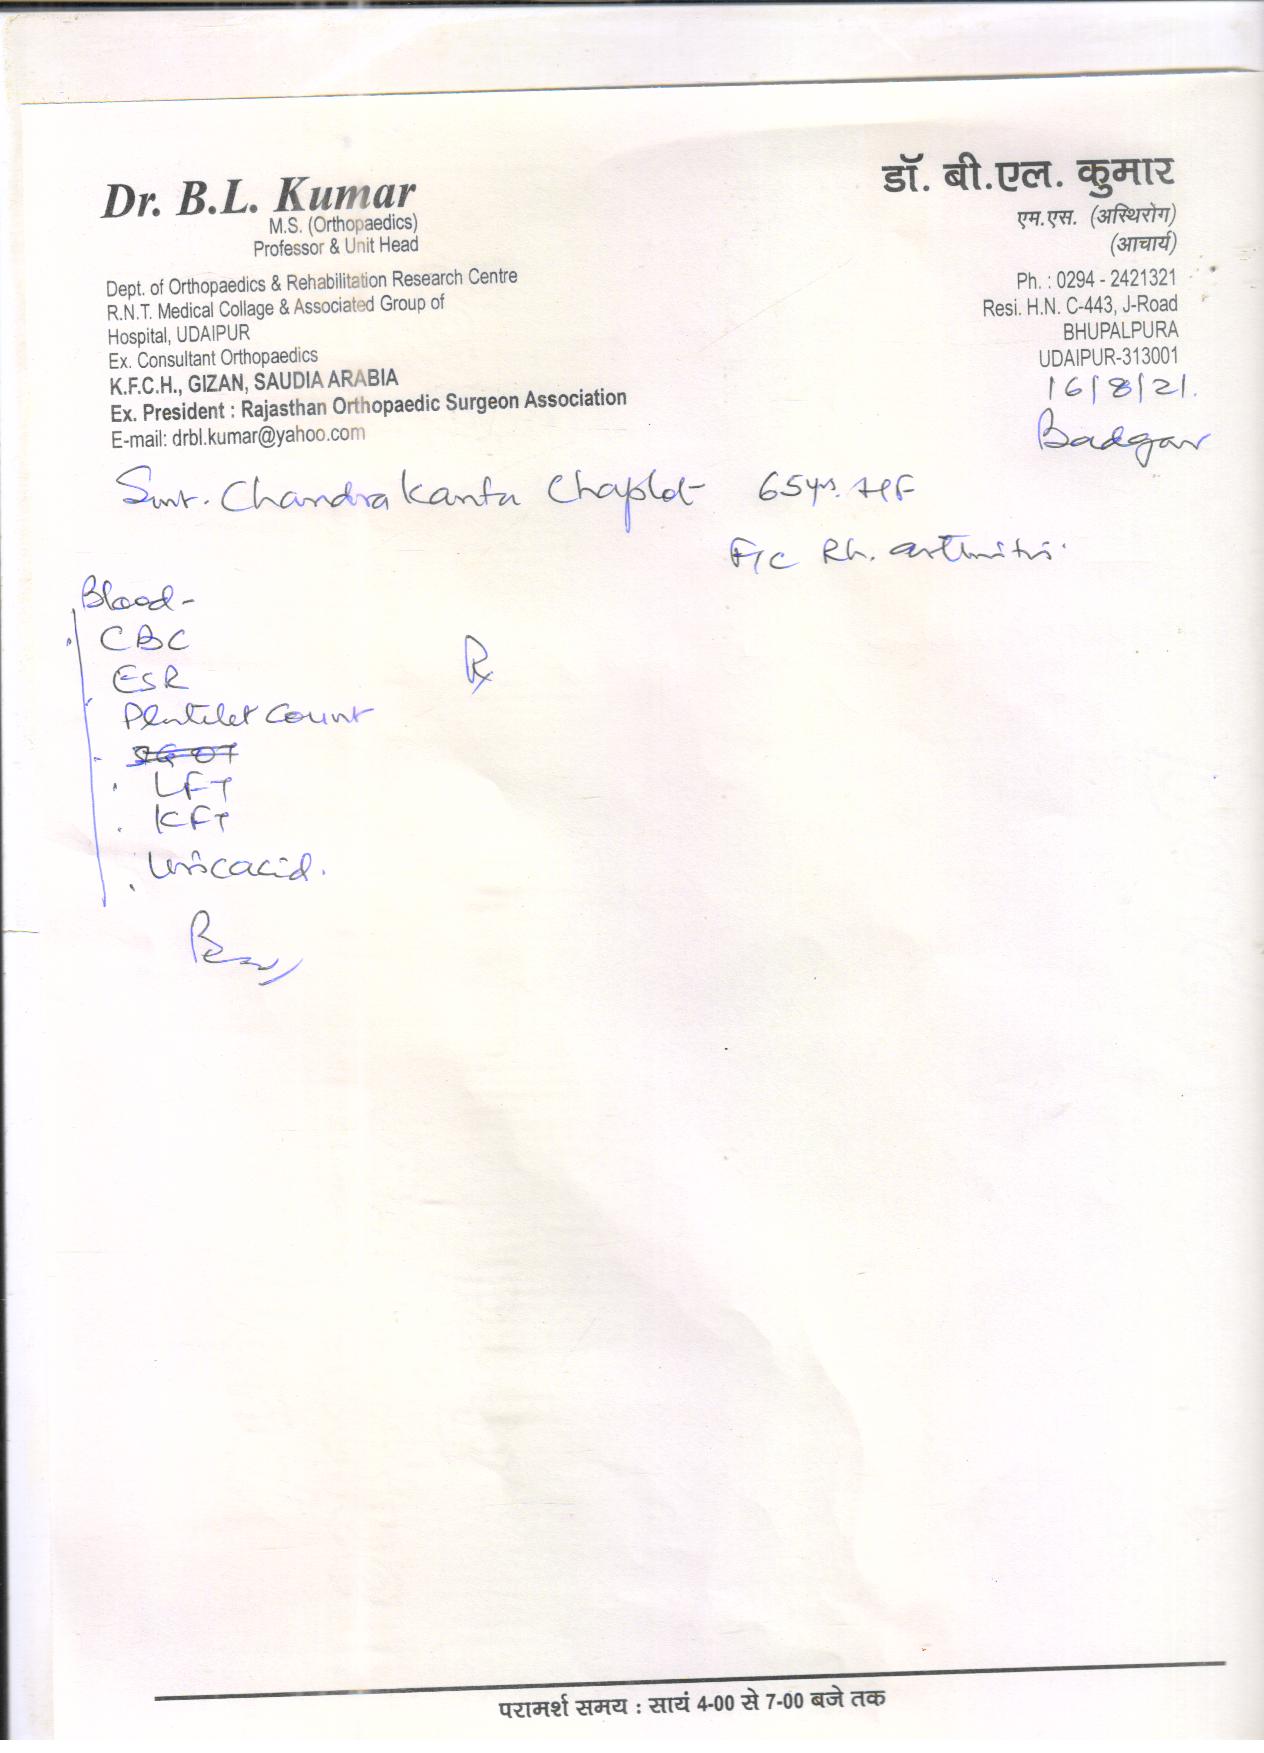 Dr. B.L. Kumar
M.S. (Orthopaedics)
Professor & Unit Head
Dept. of Orthopaedics & Rehabilitation Research Centre
R.N.T. Medical Collage & Associated Group of
Hospital, UDAIPUR
Ex. Consultant Orthopaedics
K.F.C.H., GIZAN, SAUDIA ARABIA
Ex. President : Rajasthan Orthopaedic Surgeon Association
E-mail: drbl.kumar@yahoo.com
डॉ. बी.एल. कुमार
एम.एस. (अस्थिरोग)
(आचार्य)
Ph. : 0294 - 2421321
Resi. H.N. C-443, J-Road
BHUPALPURA
UDAIPUR-313001
16/8/21.
Badgav
Smt. Chandra Kanta Chaplot 65yrs.
Rh. arthritis.
Blood -
CBC
ESR
Platilet Count
SGOT
LFT
KFT
Uricacid.
Rx
परामर्श समय : सायं 4-00 से 7-00 बजे तक